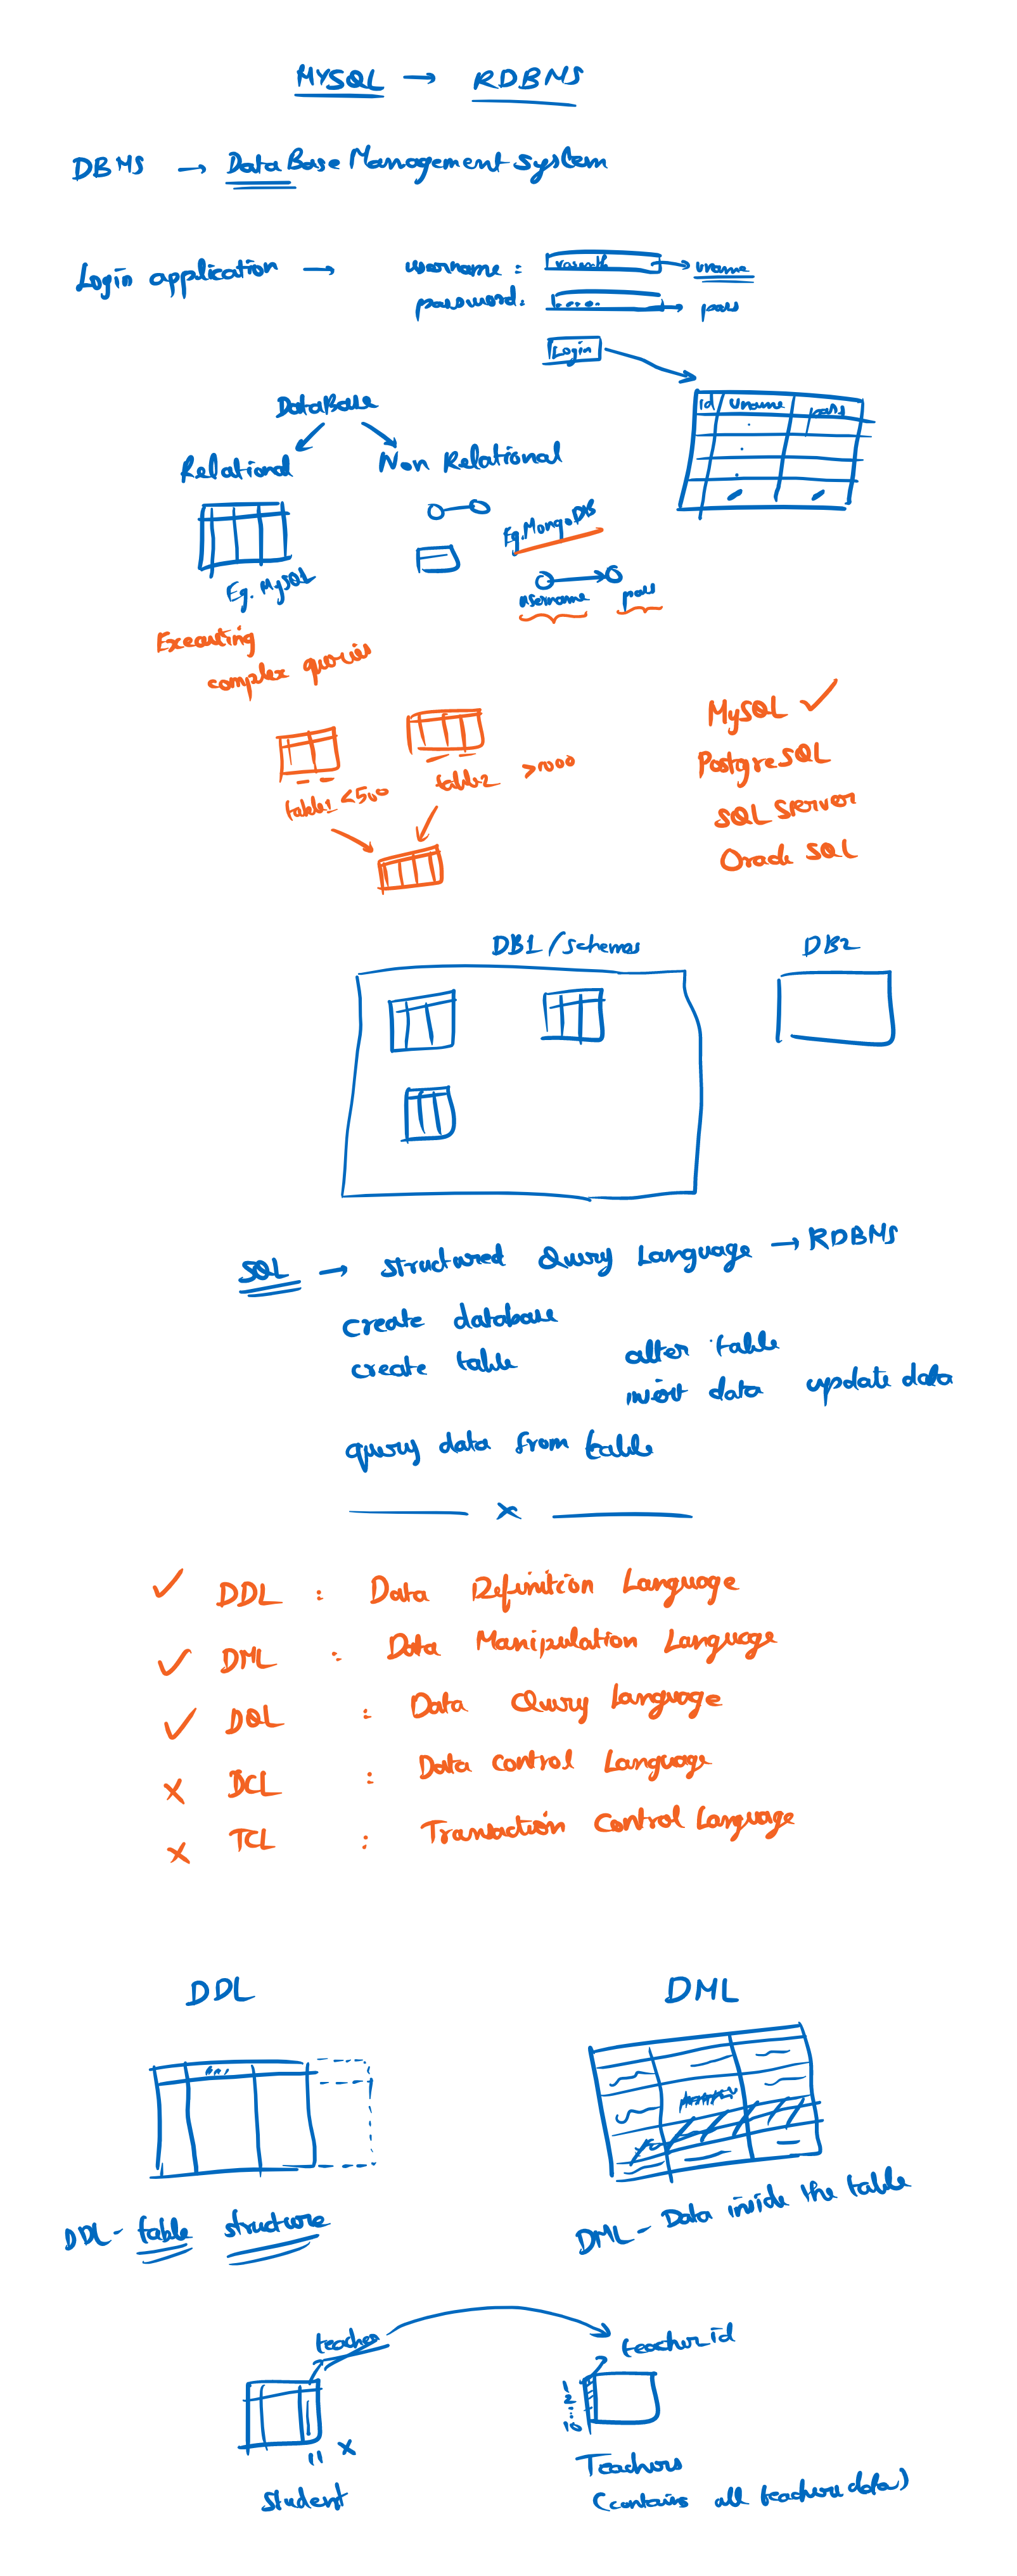 MYSQL → RDBMS
DBMS → DataBase Management system
Login application → username : → uname
password : → pass
Login
id uname pass
DataBase
Relational Non Relational
Eg. MySQL
Eg. MongoDB
username pass
Executing
complex queries
table1 <500 table2 >1000
MySQL ✓
PostgreSQL
SQL Server
Oracle SQL
DB1/schemas DB2
SQL → structured Query Language → RDBMS
create database
create table alter table
insert data update data
query data from table
x
✓ DDL : Data Definition Language
✓ DML : Data Manipulation Language
✓ DQL : Data Query Language
x DCL : Data control Language
x TCL : Transaction Control Language
DDL DML
DDL - table structure
DML - Data inside the table
teacher teacher id
11 x
Student
Teachers
(contains all teacher data)